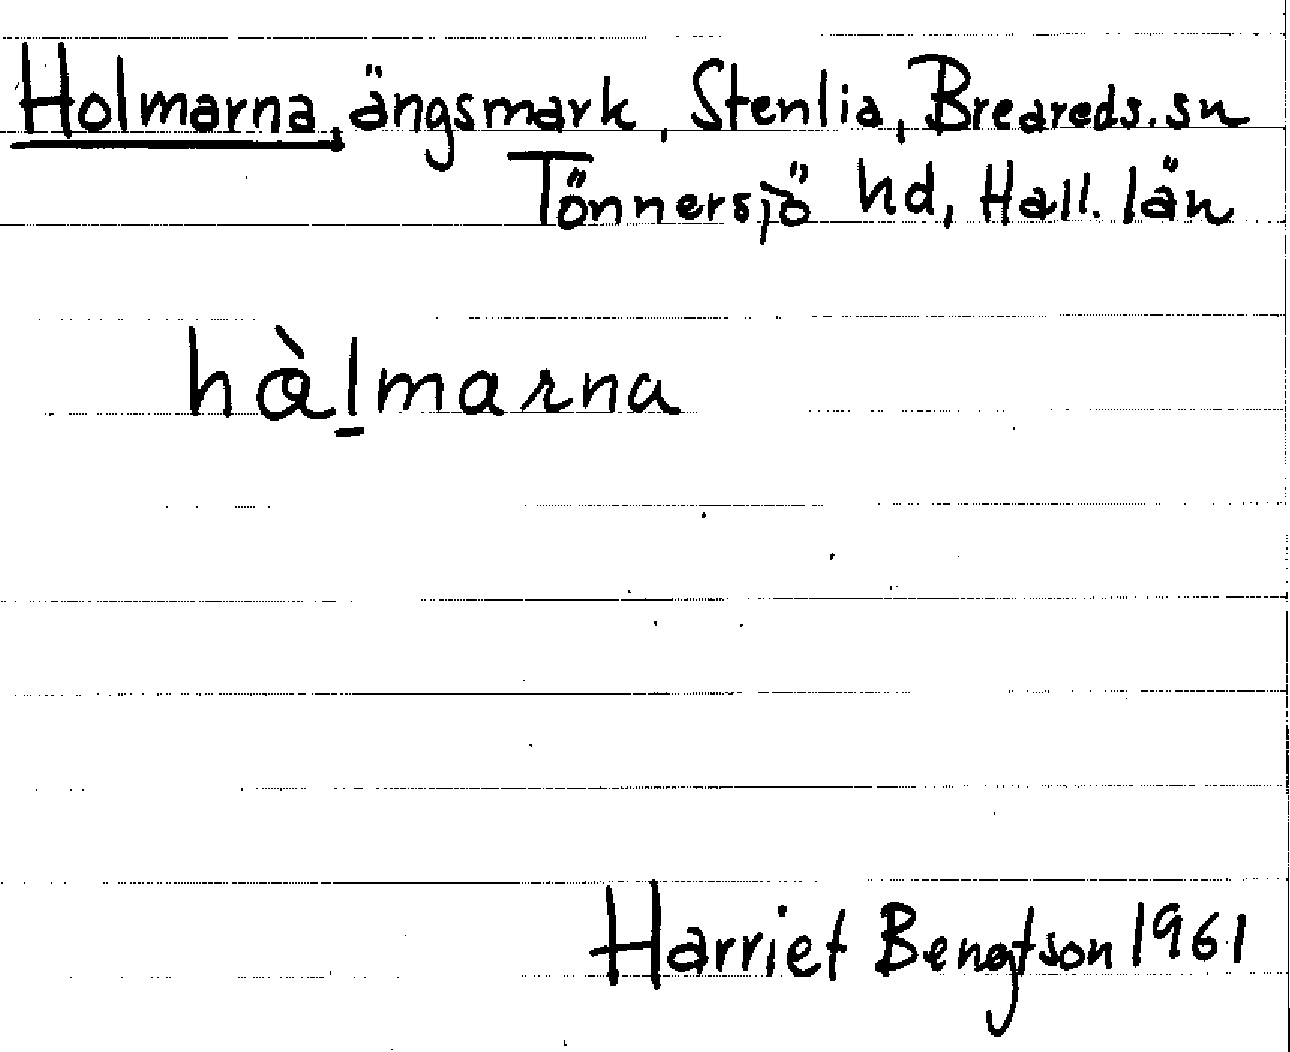 Holmarna, ängsmark, Stenlia, Breareds.sn
Tönnersjö hd, Hall. län
hàlmarna
Harriet Bengtson 1961